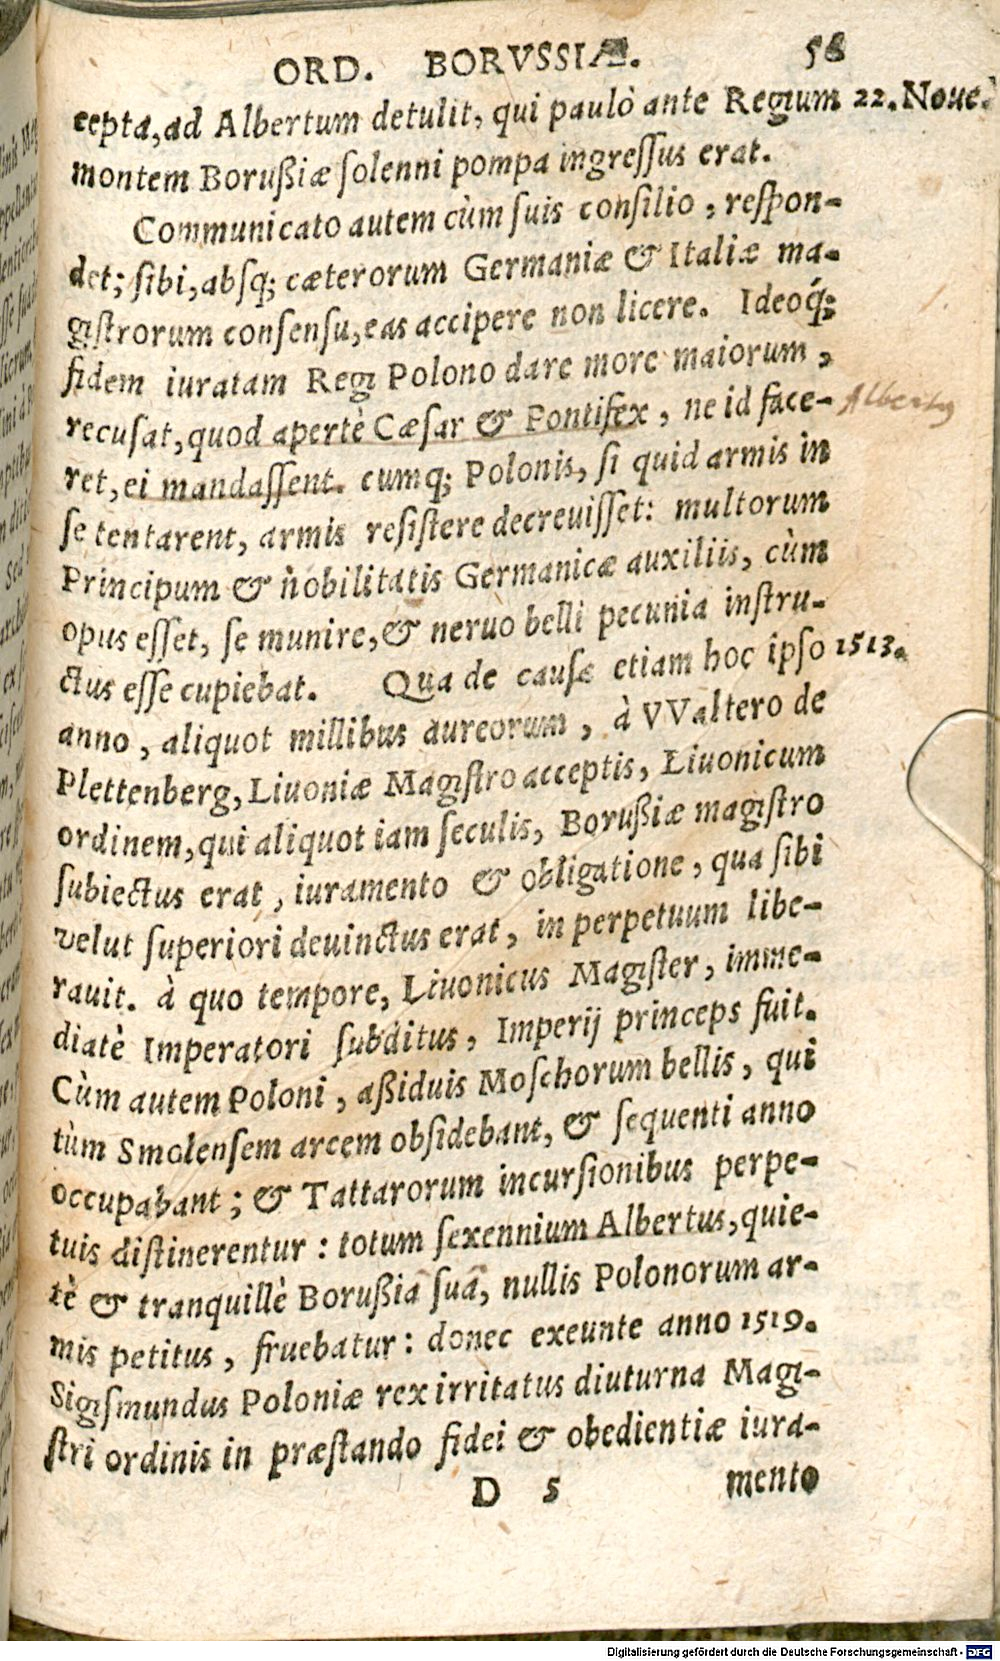 ORD. BORVSSIÆ. 58
cepta, ad Albertum detulit, qui paulò ante Regium 22. Noue.
montem Borußiæ ſolenni pompa ingreſſus erat.
Communicato autem cùm ſuis conſilio, reſpon-
det; ſibi, abſq; cæterorum Germaniæ & Italiæ ma-
giſtrorum conſenſu, eas accipere non licere. Ideoq́;
fidem iuratam Regi Polono dare more maiorum,
recuſat, quod apertè Cæſar & Pontifex, ne id face- Albertus
ret, ei mandaſſent. cumq; Polonis, ſi quid armis in
ſe tentarent, armis reſiſtere decreuiſſet: multorum
Principum & nobilitatis Germanicæ auxiliis, cùm
opus eſſet, ſe munire, & neruo belli pecunia inſtru-
ctus eſſe cupiebat. Qua de cauſa etiam hoc ipſo 1513.
anno, aliquot millibus aureorum, à VValtero de
Plettenberg, Liuoniæ Magiſtro acceptis, Liuonicum
ordinem, qui aliquot iam ſeculis, Borußiæ magiſtro
ſubiectus erat, iuramento & obligatione, qua ſibi
velut ſuperiori deuinctus erat, in perpetuum libe-
rauit. à quo tempore, Liuonicus Magiſter, imme-
diatè Imperatori ſubditus, Imperij princeps fuit.
Cùm autem Poloni, aßiduis Moſchorum bellis, qui
tùm Smolenſem arcem obſidebant, & ſequenti anno
occupabant; & Tattarorum incurſionibus perpe-
tuis diſtinerentur: totum ſexennium Albertus, quie-
tè & tranquillè Borußia ſua, nullis Polonorum ar-
mis petitus, fruebatur: donec exeunte anno 1519.
Sigiſmundus Poloniæ rex irritatus diuturna Magi-
ſtri ordinis in præſtando fidei & obedientiæ iura-
D 5 mento
Digitalisierung gefördert durch die Deutsche Forschungsgemeinschaft - DFG